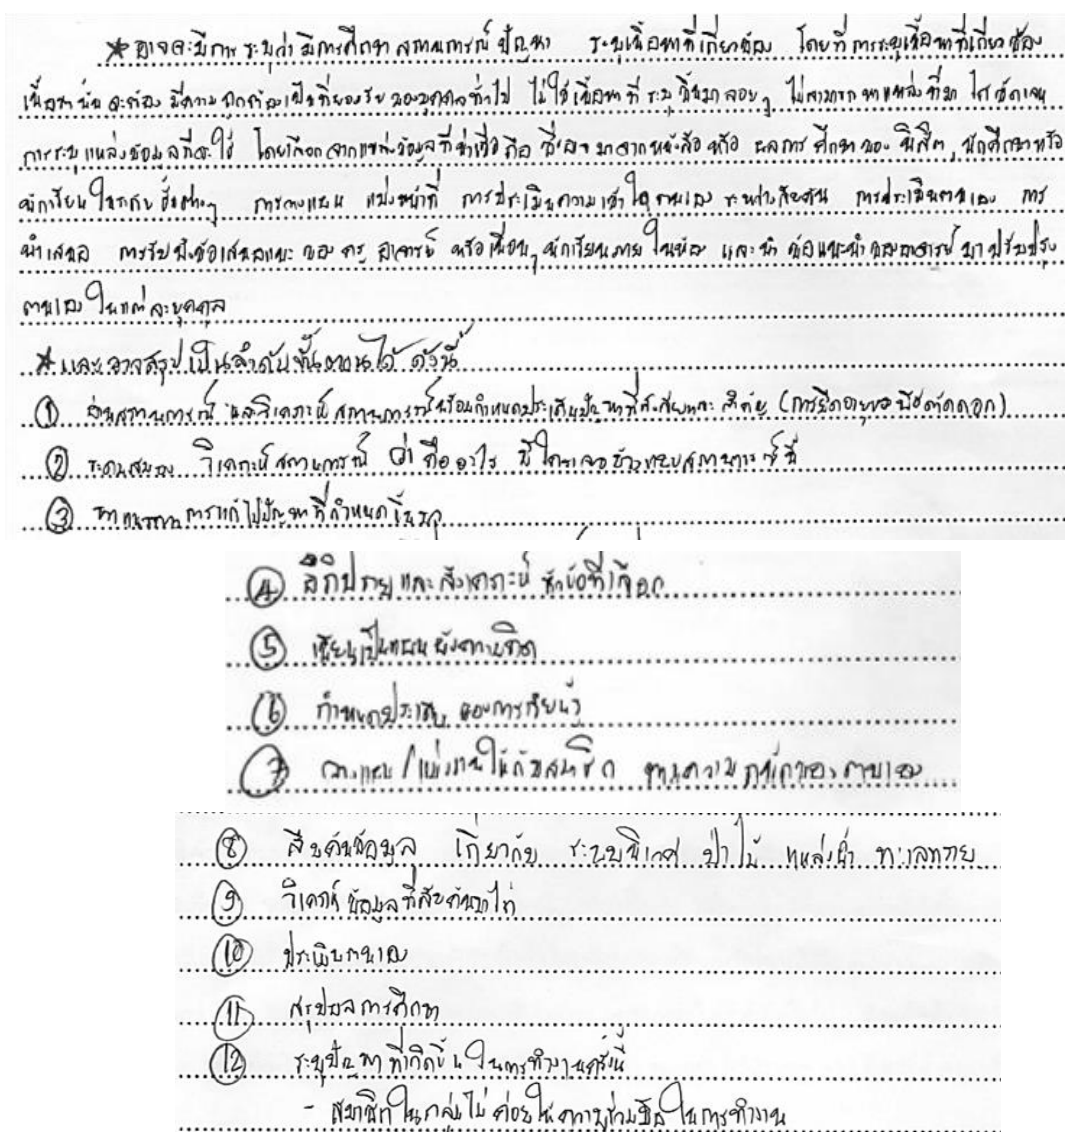 * อาจจะมีการระบุว่า มีการศึกษา สถานการณ์ ปัญหา ระบุเนื้อหาที่เกี่ยวข้อง โดยที่ การระบุเนื้อหาที่เกี่ยวข้อง
เนื้อหานั้น จะต้อง มีความถูกต้องเป็นที่ยอมรับของบุคคลทั่วไป ไม่ใช่เนื้อหาที่ ระบุขึ้นมาลอยๆ ไม่สามารถ หาแหล่งที่มา ได้ชัดเจน
การระบุแหล่งข้อมูลที่จะใช้ โดยเลือกจากแหล่งข้อมูลที่น่าเชื่อถือ ที่ มาจากหนังสือ หรือ ผลการศึกษาของ นิสิต, นักศึกษาหรือ
นักเรียน ในระดับชั้นต่างๆ การวางแผน แบ่งหน้าที่ การประเมินความเข้าใจตนเอง ระหว่าง การประเมินตนเอง การ
นำเสนอ การรับฟังข้อเสนอแนะ ของ ครู อาจารย์ หรือเพื่อนๆ นักเรียนภายในห้อง และนำ ข้อแนะนำของอาจารย์ มาปรับปรุง
ตนเองในแต่ละบุคคล
* และอาจสรุปเป็นลำดับขั้นตอนได้ ดังนี้
① อ่านสถานการณ์ และวิเคราะห์ สถานการณ์พร้อมกำหนดประเด็นปัญหาที่สงสัยและ สำคัญ (การยืดอายุของพืชตัดดอก)
② ระดมสมอง วิเคราะห์สถานการณ์ ว่า คืออะไร มีใครเคย สถานการณ์นี้
③ หาแนวทางการแก้ไขปัญหาที่กำหนดขึ้นมา
④ อภิปราย และ สังเคราะห์ หัวข้อที่เลือก
⑤ เขียนเป็นแผนผังความคิด
⑥ กำหนดประเด็น ของการเรียนรู้
⑦ วางแผน / แบ่งงานให้กับสมาชิก ตามความถนัดของตนเอง
⑧ สืบค้นข้อมูล เกี่ยวกับ ระบบนิเวศ ป่าไม้ แหล่งน้ำ ทะเลทราย
⑨ วิเคราห์ ข้อมูลที่สืบค้นมาได้
⑩ ประเมินตนเอง
⑪ สรุปผลการศึกษา
⑫ ระบุปัญหา ที่เกิดขึ้น ในการทำงานครั้งนี้
- สมาชิกในกลุ่มไม่ค่อยให้ความร่วมมือในการทำงาน